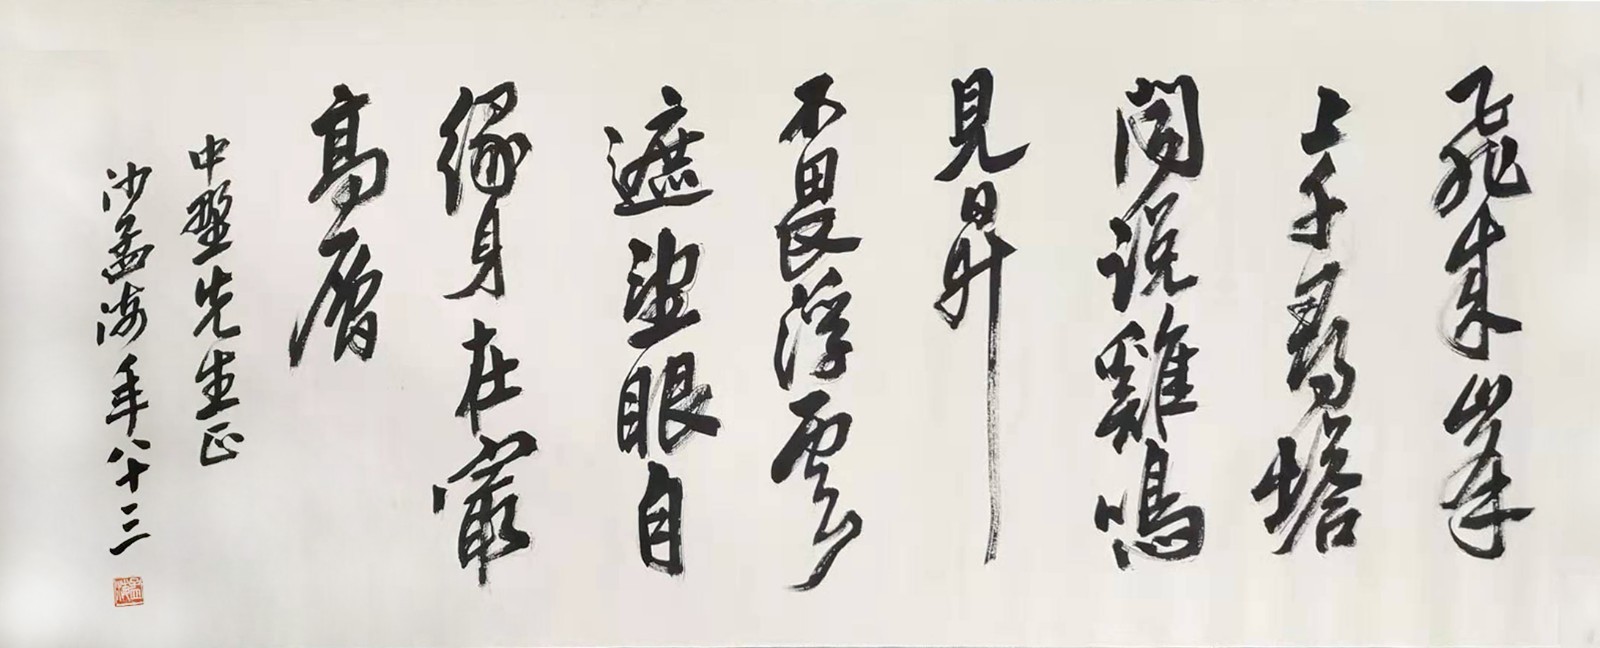 飛來峯
上千尋塔
聞說雞鳴
見日昇
不畏浮雲
遮望眼自
緣身在最
高層
中堅先生正
沙孟海年八十三